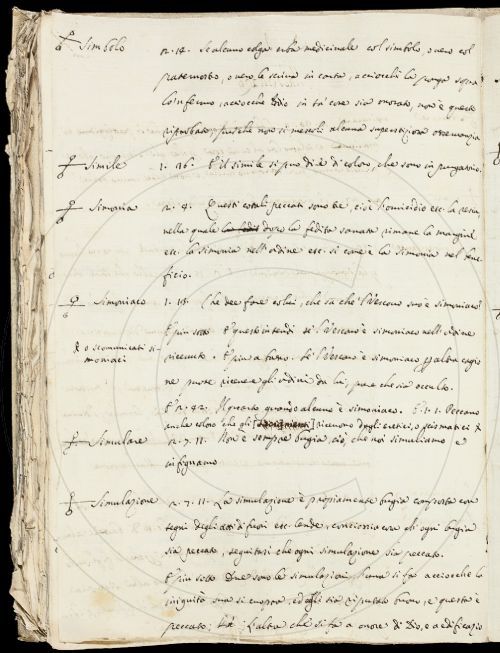 Simbolo
2. 14. Se alcuno colga erba medicinale col simbolo, o vero col
paternostro, o vero le scriva in carta, acciocchè la ponga sopra
lo 'nfermo, acciocchè Iddio in tal cose sia onorato, non è questo
rifiutato, purchè non si mescoli alcuna superstizione
Simile
1. E il simile si può dire di coloro, che sono in purgatorio.
Simonia
2. 4. Questi cotali peccati sono tre, cioè l'omicidio etc. la
nella quale dopo la fedita sanata rimane la margine
etc. la simonia nell'ordine etc. si come è la simonia nel bene
ficio.
Simoniaco
1. 18. Che dee fare colui, che sa che 'l Vescovo suo è simoniaco?
E più sotto E questo intendi se 'l Vescovo è simoniaco nell'ordine
o scomunicati si
moniaci
ricevuto. E più a fondo. Se 'l Vescovo è simoniaco per altra cagio
ne puote ricevere gli ordini da lui, pure che sia occulto.
E 2. 42. Il quarto quando alcuno è simoniaco. 1. 1. Peccano
anche coloro che gli ricevono dagli eretici, o scismatici
Simulare
2. 7. 11. Non è sempre bugia ciò, che noi simuliamo e
infignamo
Simulazione
2. 7. 11. La simulazione è propiamente bugia composta con
segni degli atti di fuori etc. Onde, conciossia cosa che ogni bugia
sia peccato, seguitasi che ogni simulazione sia peccato.
E più sotto Due sono le simulazioni, l'una si fa acciocchè la
iniquità sua si cuopra, ed egli sia riputato buono, e questa è
peccato; l'altra che si fa a onore di Dio, e a edificazio